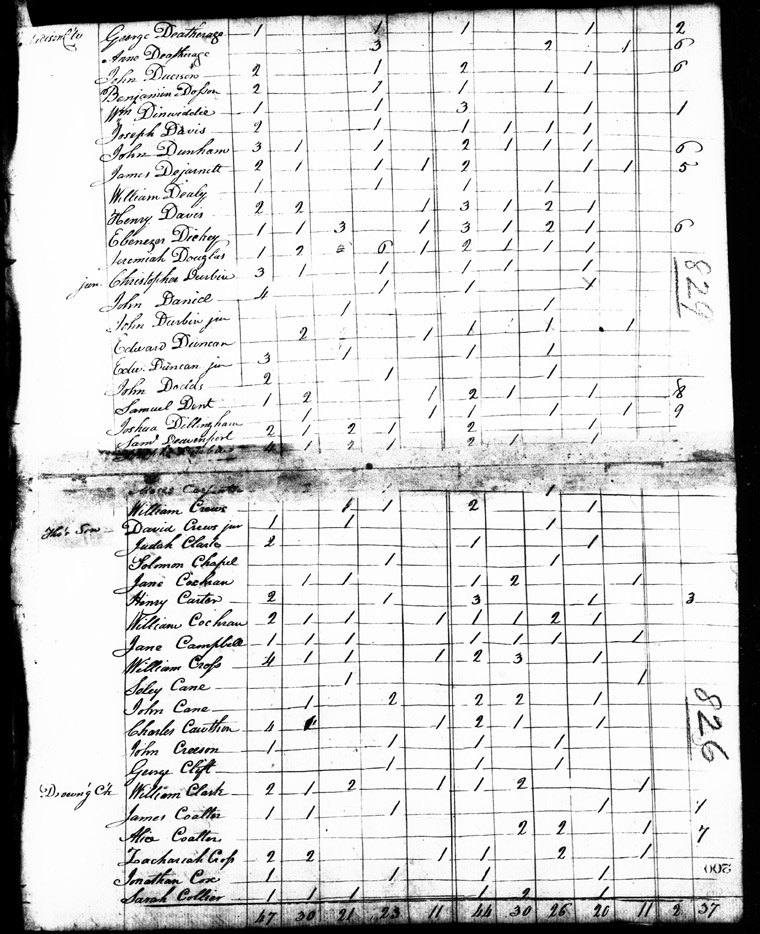 George Deatherage 1 1 1 1 2
Anne Deatherage 3 2 1 6
John Duerson 2 1 2 1 6
Benjamin Dosson 2 1 1 1
Wm Dinwiddie 1 1 3 1 1
Joseph Davis 2 1 1 1 1 1
John Dunham 3 1 1 2 1 1 1 6
James Dejarnett 2 1 1 1 2 1 1 5
William Dealy 1 1 1 1
Henry Davis 2 2 1 3 1 2 1
Ebenezer Dickey 1 1 3 1 3 1 2 1 6
Jeremiah Douglas 1 2 6 1 2 1 1 1
jun Christopher Durbin 3 1 1 1 1 1
John Daniel 4 1 1
John Durbin jun 1 1
Edward Duncan 2 1 1 1 1
Edw. Duncan jun 3 1 1 1
John Dodds 2 1 1
Samuel Dent 1 2 1 2 1 1 8
Joshua Dillingham 1 1 1 1 1 9
Sam Deavenport 2 1 2 1 2 1
4 1 2 1 2 1 1
829
William Crews 1 1 2 1
Tho's Son David Crews jun 1 1 1
Judah Clark 2 1 1
Solomon Chapel 1 1
Jane Cochran 1 1 1 2 1
Henry Carter 2 1 3 1 3
William Cochran 2 1 1 1 1 1 2 1
Jane Campbell 1 1 1 1 1 1 1
William Cross 4 1 1 1 2 3 1
Cane 1 1
John Cane 1 2 2 2 1
Charles Cawthon 4 1 1 2 1 1
John Creeson 1 1 1 1
George Clift 1 1 1
Drown'g Ck William Clark 2 1 2 1 1 2 1
James Coalter 1 1 1 1 1
Alice Coalter 2 2 1 7
Zachariah Cross 2 2 1 1 2 1
Jonathan Cox 1 1 1 1
Sarah Collier 1 1 1 1 2 1
47 30 21 23 11 44 30 26 20 11 2 37
826
200